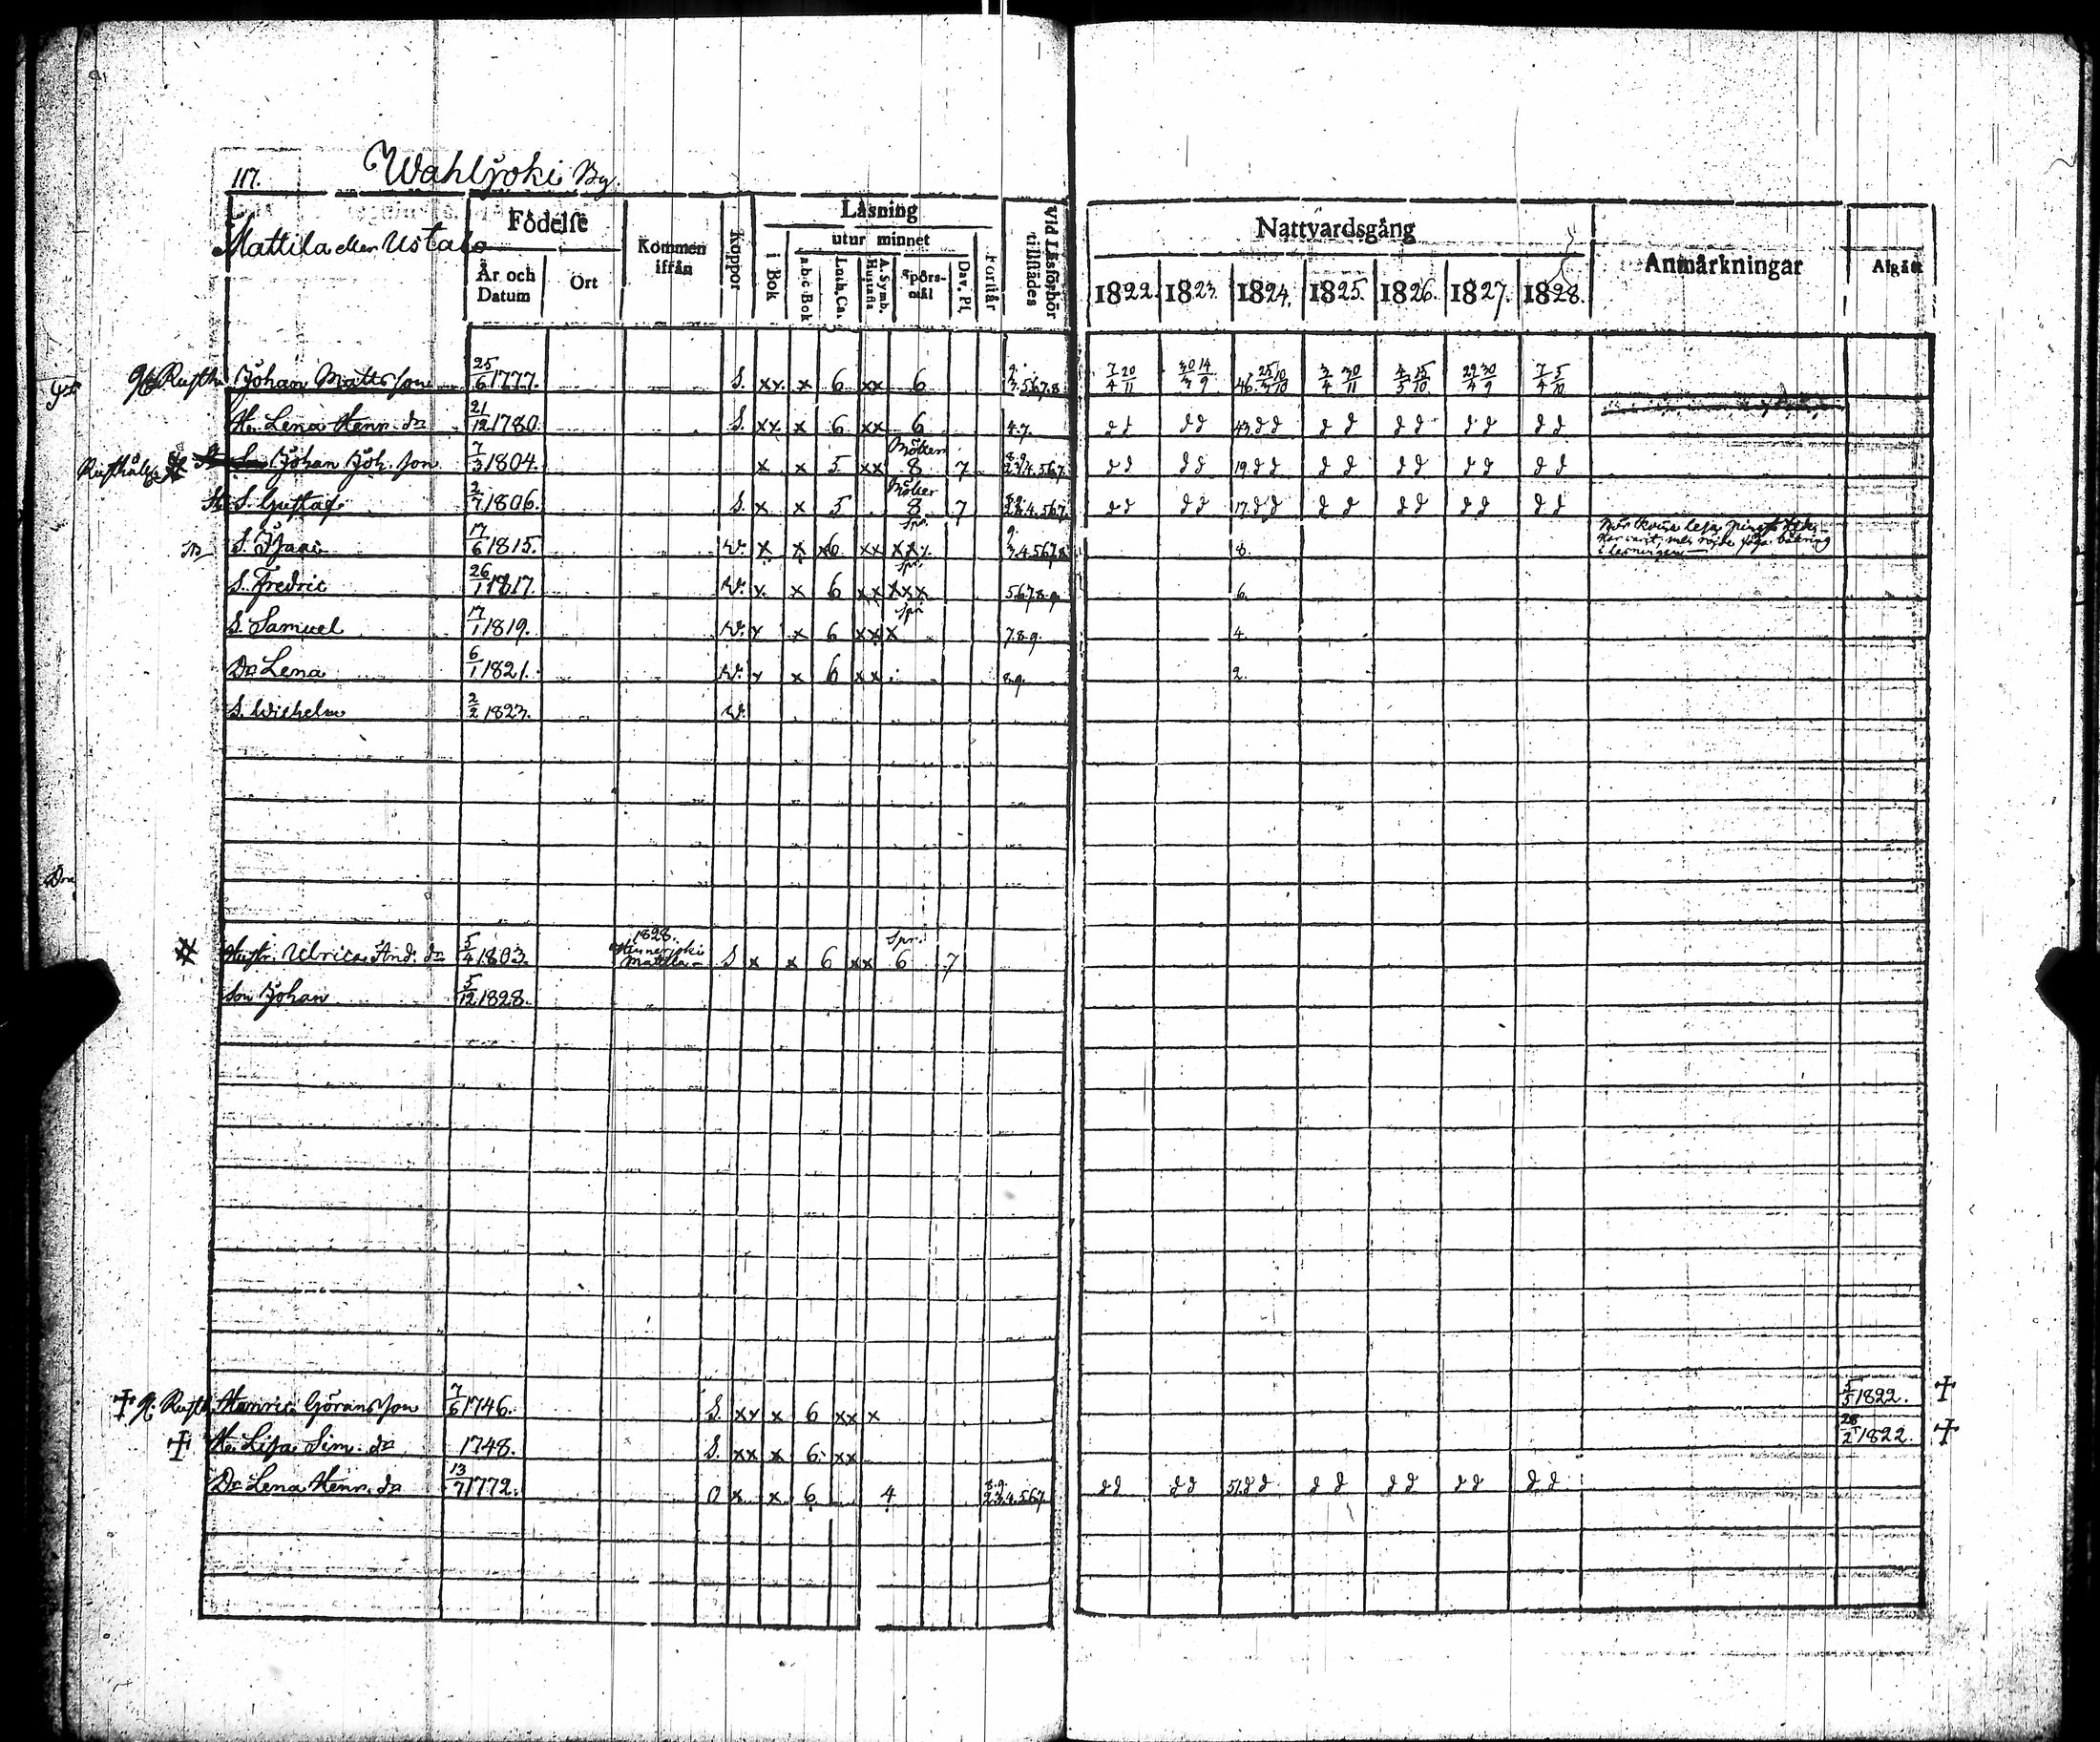 117. Wahljoki By.
Mattila eller Ustalo
Födelse
År och Datum
Ort
Kommen ifrån
Koppor
Läsning
i Bok
utur minnet
a.b.c Bok
Luth. Ca.
A. Symb. Hustafla
Spörs-mål
Dav. Pf.
Förstår
Vid Läsförhör tillstädes
Nattvardsgång
1822. 1823. 1824. 1825. 1826. 1827. 1828.
Anmärkningar
Afgått
Johan Matts son 25/6 1777. S. xx. x 6 xx 6 9. 3.5.6.7.8 7/4 20/11 30/3 14/9 46. 25/3 10/10 3/4 30/11 4/5 15/10 29/4 30/9 7/4 5/10
Hu. Lena Henr. dr 21/12 1780. S. xx. x 6 xx 6 4.7. d d d d 43. d d d d d d d d d d
Johan Joh. son 7/3 1804. x x 5 xx 8 7 8.9. 2.3.4.5.6.7. d d d d 19. d d d d d d d d d d
S. Gustaf 2/7 1806. S. x x 5 8 7 d d d d 17. d d d d d d d d d d
S. Isaac 17/6 1815. W. x x x6 xx xxx Spr. 9. 3.4.5.6.7.8. 8.
S. Fredric 26/1 1817. W. x x 6 xx xxx Spr. 5.6.7.8.9. 6.
S. Samuel 17/1 1819. W. x x 6 xx x Spr. 7.8.9. 4.
Dr Lena 6/1 1821. W. x x 6 xx 8.9. 2.
S. Wilhelm 2/2 1823. W.
Hustr. Ulrica And. dr 5/4 1803. 1828. Mattila S x x 6 xx 6 Spr. 7
Son Johan 5/12 1828.
Henric Görans son 7/6 1746. S. xx x 6 xx x 5/5 1822.
Hu. Lisa Sim. dr 1748. S. xx x 6 xx 28/2 1822.
Dr Lena Henr. dr 13/7 1772. 0 x x 6 4 8.9. 2.3.4.5.6.7. d d d d 51. d d d d d d d d d d